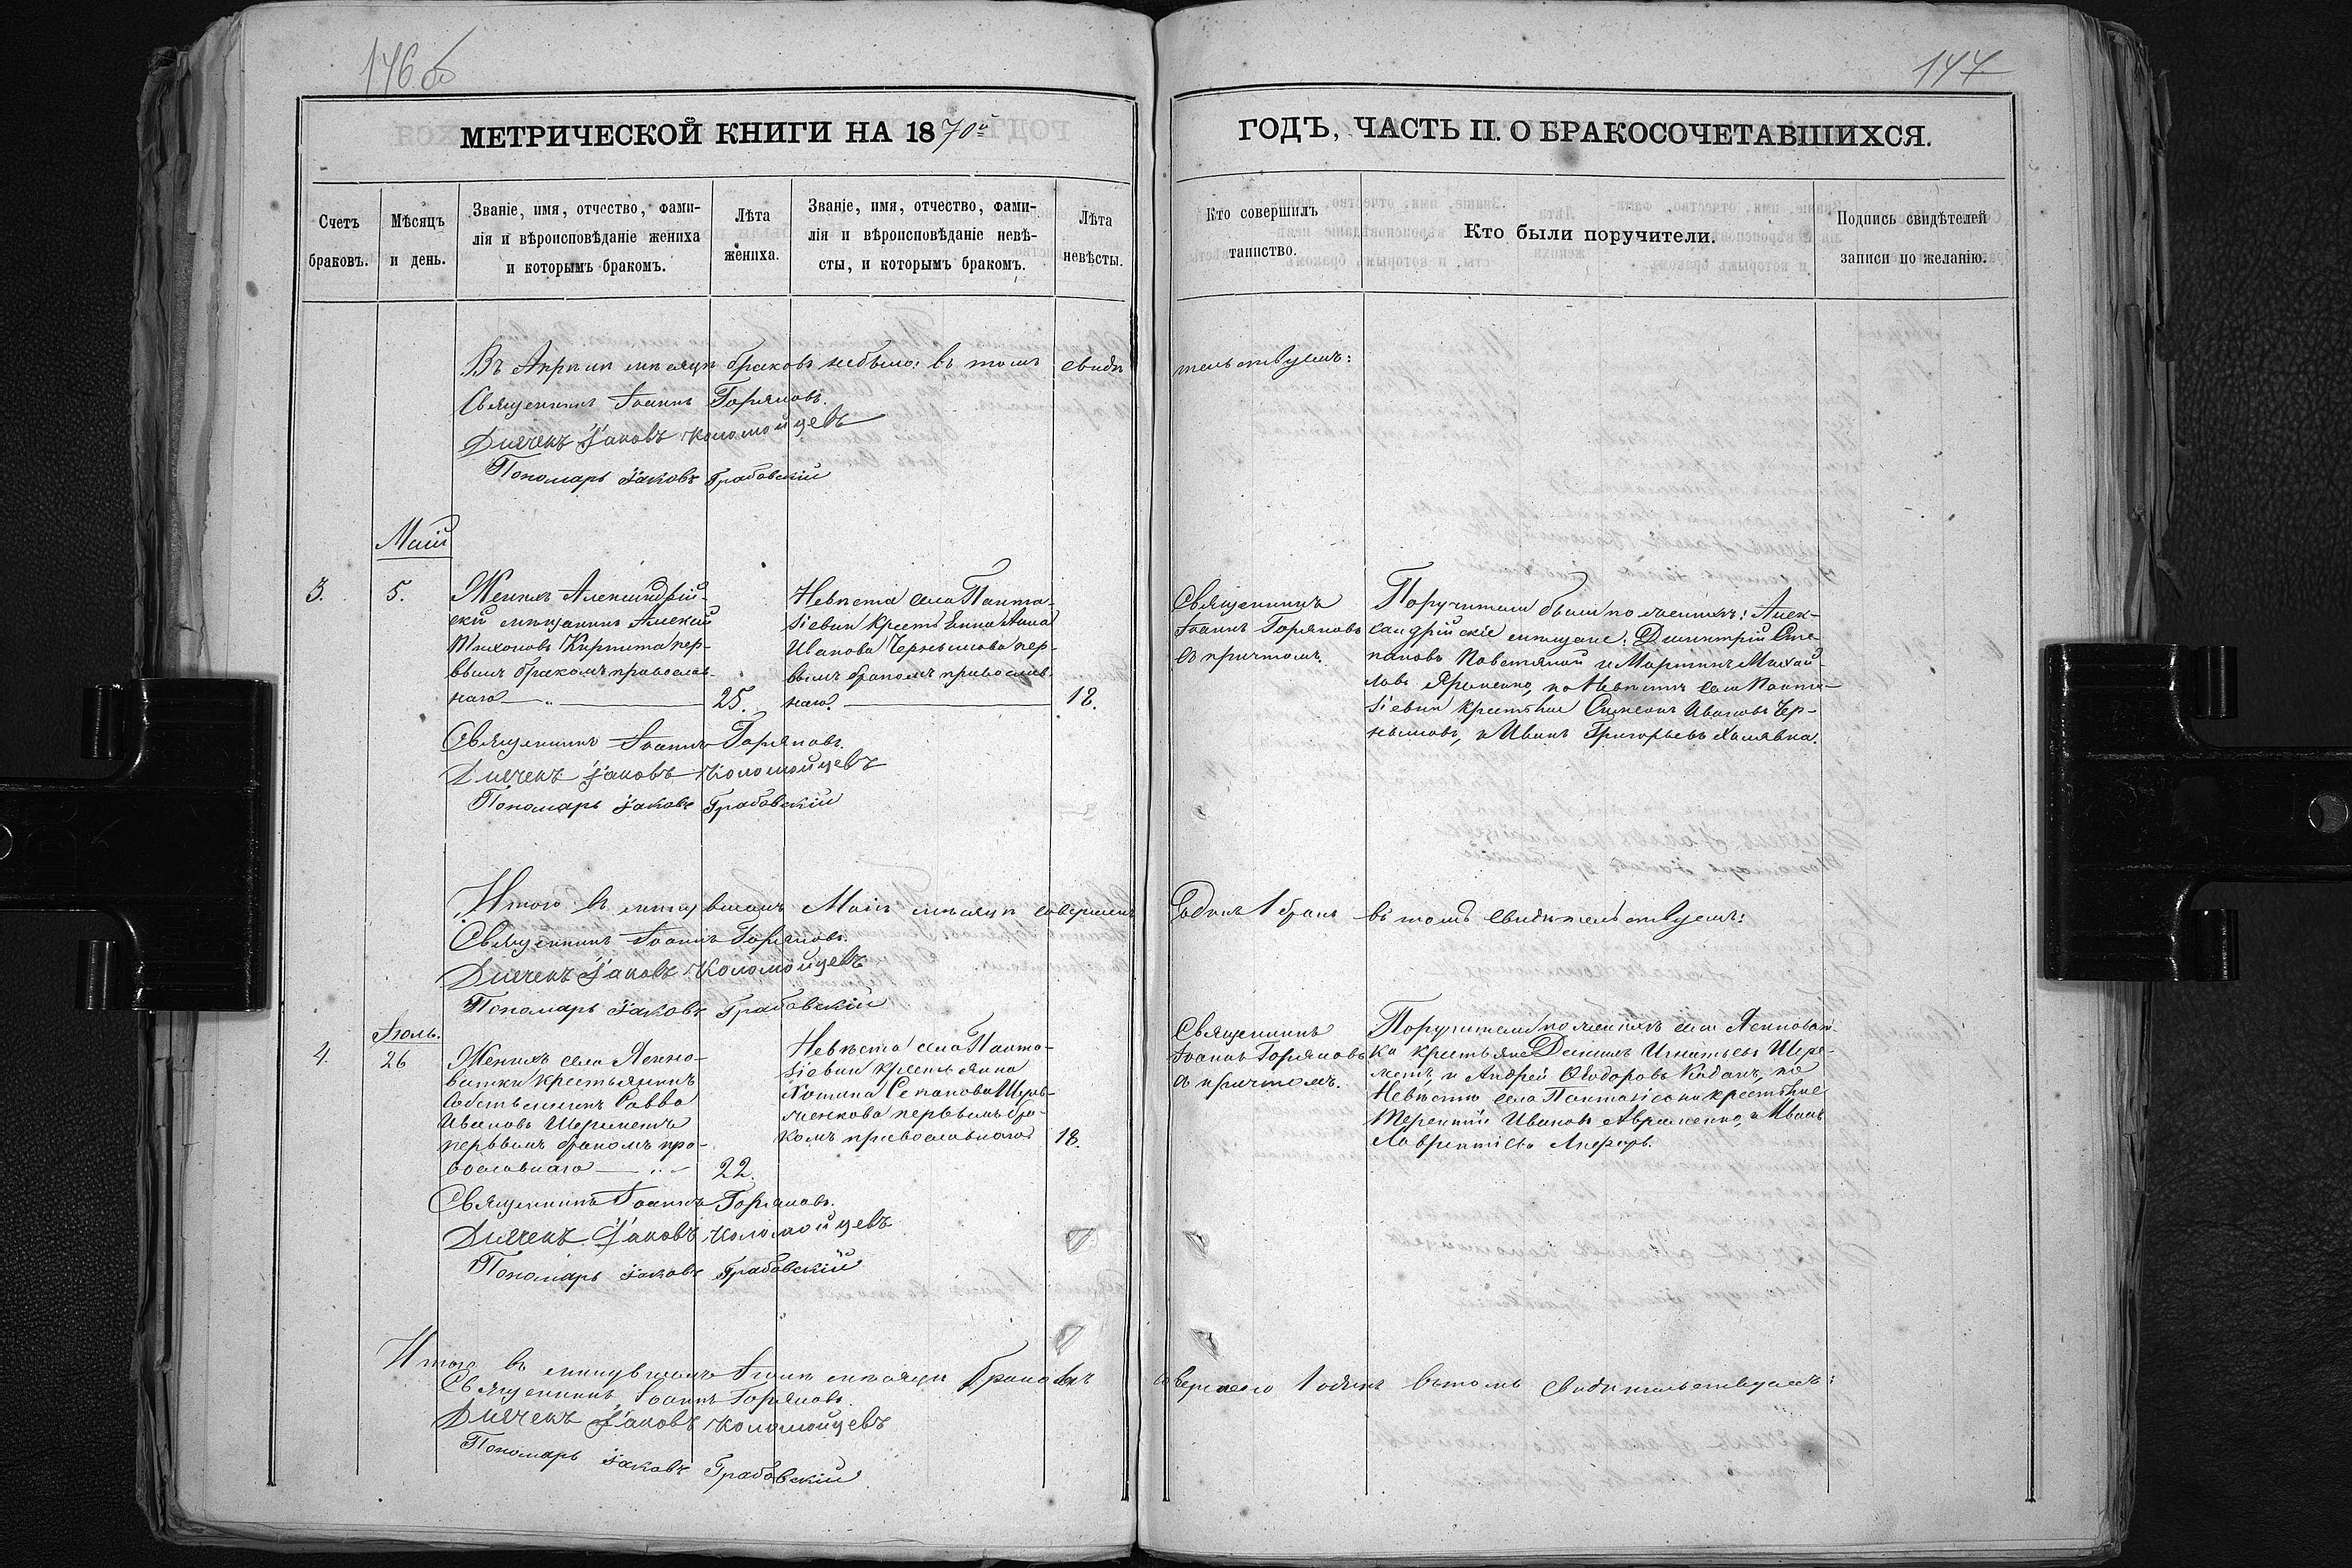 146 об
147
МЕТРИЧЕСКОЙ КНИГИ НА 1870й
ГОДЪ, ЧАСТЬ II. О БРАКОСОЧЕТАВШИХСЯ.
Счетъ
браковъ.
Мѣсяцъ
и день.
Званіе, имя, отчество, фами-
лія и вѣроисповѣданіе жениха
и которымъ бракомъ.
Лѣта
жениха.
Званіе, имя, отчество, фами-
лія и вѣроисповѣданіе невѣ-
сты, и которымъ бракомъ.
Лѣта
невѣсты.
Кто совершилъ
таинство.
Кто были поручители.
Подпись свидѣтелей
записи по желанію.
Въ Апрѣлѣ мѣсяцѣ браковъ небыло: въ томъ свидѣ
тельствуемъ:
Священникъ Іоаннъ Горяновъ.
Дьячекъ Іаковъ Коломойцевъ
Пономарь Іаковъ Грабовскій
Май
3.
5.
Женихъ Александрій-
скій мѣщанинъ Алексѣй
Тихоновъ Кирпита пер-
вымъ бракомъ православ-
наго
25.
Невѣста села Панта-
зіевки Анна
Иванова Чернышова пер-
вымъ бракомъ православ-
наго.
18.
Священникъ
Іоаннъ Горяновъ
съ причтомъ.
Поручители были по женихѣ: Алек-
сандрійскіе мѣщане: Димитрій Сте-
пановъ Повстяной и Мартинъ Михай-
ловъ Яременко, по Невѣстѣ села Панта-
зіевки крестьяне Симеонъ Ивановъ Чер-
нышовъ, и Иванъ Григорьевъ Халявка.
Священникъ Іоаннъ Горяновъ.
Дьячекъ Іаковъ Коломойцевъ
Пономарь Іаковъ Грабовскій
Итого въ минувшемъ Маіѣ мѣсяцѣ совершенъ
одинъ 1 бракъ въ томъ свидѣтельствуемъ:
Священникъ Іоаннъ Горяновъ.
Дьячекъ Іаковъ Коломойцевъ
Пономарь Іаковъ Грабовскій
Іюль.
4.
26
Женихъ села Ясино-
ватки крестьянинъ
собственникъ Савва
Ивановъ Шереметъ
первымъ бракомъ пра-
вославнаго
22.
Невѣста села Панта-
зіевки крестьянка
Степанова
первымъ бра-
комъ православнаго
18.
Священникъ
Іоаннъ Горяновъ
съ причтомъ.
Поручители по женихѣ села Ясиноват-
ки крестьяне Даніилъ Игнатьевъ Шере-
метъ, и Андрей Ѳеодоровъ Кабанъ, по
Невѣстѣ села Пантазіевки крестьяне
Терентій Ивановъ Авраменко, и Иванъ
Лаврентіевъ
Священникъ Іоаннъ Горяновъ.
Дьячекъ Іаковъ Коломойцевъ
Пономарь Іаковъ Грабовскій
Итого въ минувшемъ Іюлѣ мѣсяцѣ браковъ
совершено 1 одинъ въ томъ свидѣтельствуемъ:
Священникъ Іоаннъ Горяновъ.
Дьячекъ Іаковъ Коломойцевъ
Пономарь Іаковъ Грабовскій